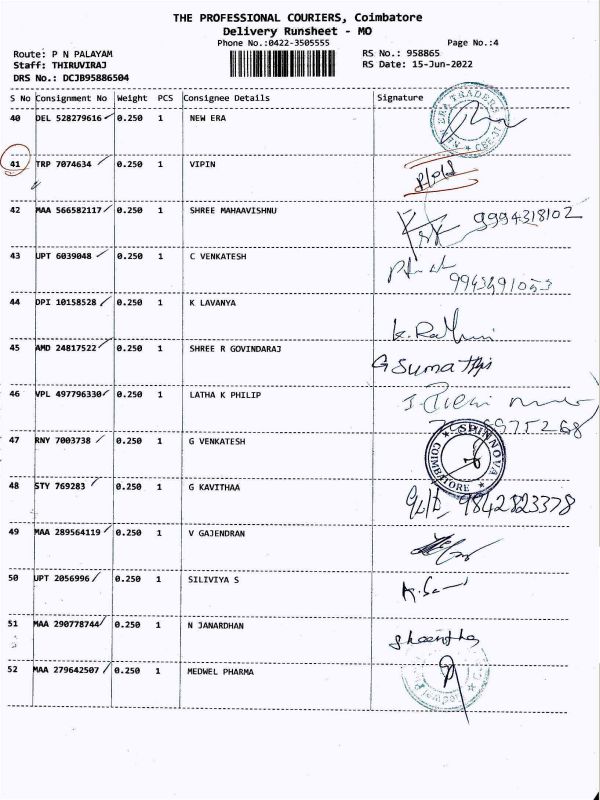 THE PROFESSIONAL COURIERS, Coimbatore
Delivery Runsheet - MO
Phone No.:0422-3505555 Page No.:4
Route: P N PALAYAM RS No.: 958865
Staff: THIRUVIRAJ RS Date: 15-Jun-2022
DRS No.: DCJB95886504
S No Consignment No Weight PCS Consignee Details Signature
40 DEL 528279616 0.250 1 NEW ERA
NEW ERA TRADERS ★ CBE-37 ★
41 TRP 7074634 0.250 1 VIPIN
42 MAA 566582117 0.250 1 SHREE MAHAAVISHNU
9994318102
43 UPT 6039048 0.250 1 C VENKATESH
44 DPI 10158528 0.250 1 K LAVANYA
45 AMD 24817522 0.250 1 SHREE R GOVINDARAJ
G Sumathi
46 VPL 497796330 0.250 1 LATHA K PHILIP
47 RNY 7003738 0.250 1 G VENKATESH
★ SPINNOVA ★ COIMBATORE
48 STY 769283 0.250 1 G KAVITHAA
9842823378
49 MAA 289564119 0.250 1 V GAJENDRAN
50 UPT 2056996 0.250 1 SILIVIYA S
51 MAA 290778744 0.250 1 N JANARDHAN
52 MAA 279642507 0.250 1 MEDWEL PHARMA